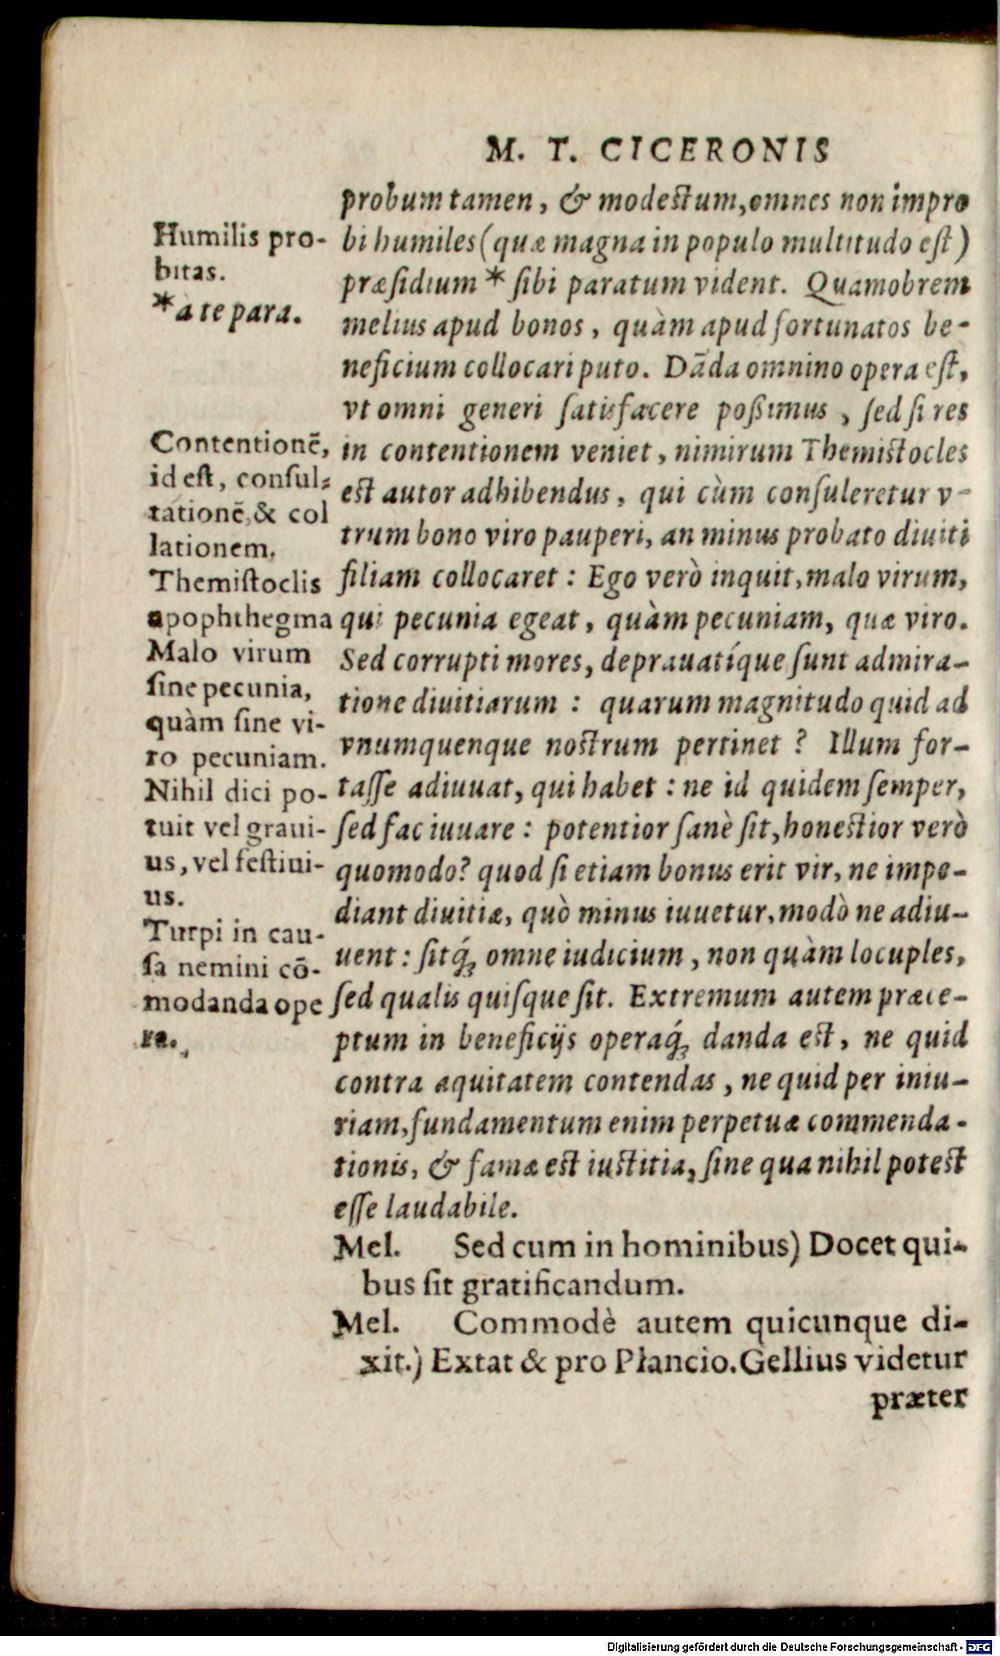 M. T. CICERONIS
probum tamen, & modestum, omnes non impro
bi humiles (quæ magna in populo multitudo est)
præsidium * sibi paratum vident. Quamobrem
melius apud bonos, quàm apud fortunatos be-
neficium collocari puto. Dāda omnino opera est,
vt omni generi satisfacere poßimus, sed si res
in contentionem veniet, nimirum Themistocles
est autor adhibendus, qui cùm consuleretur v-
trum bono viro pauperi, an minus probato diuiti
filiam collocaret: Ego verò inquit, malo virum,
qui pecunia egeat, quàm pecuniam, quæ viro.
Sed corrupti mores, deprauatíque sunt admira-
tione diuitiarum: quarum magnitudo quid ad
vnumquenque nostrum pertinet? Illum for-
tasse adiuuat, qui habet: ne id quidem semper,
sed fac iuuare: potentior sanè sit, honestior verò
quomodo? quod si etiam bonus erit vir, ne impe-
diant diuitiæ, quò minus iuuetur, modò ne adiu-
uent: sitq́; omne iudicium, non quàm locuples,
sed qualis quisque sit. Extremum autem præce-
ptum in beneficijs operaq́; danda est, ne quid
contra æquitatem contendas, ne quid per iniu-
riam, fundamentum enim perpetuæ commenda-
tionis, & famæ est iustitia, sine qua nihil potest
esse laudabile.
Mel. Sed cum in hominibus) Docet qui-
bus sit gratificandum.
Mel. Commodè autem quicunque di-
xit.) Extat & pro Plancio. Gellius videtur
præter
Humilis pro-
bitas.
*à te para.
Contentionē,
id est, consul-
tationē, & col
lationem.
Themistoclis
apophthegma
Malo virum
sine pecunia,
quàm sine vi-
ro pecuniam.
Nihil dici po-
tuit vel graui-
us, vel festiui-
us.
Turpi in cau-
sa nemini cō-
modanda ope
ra.
Digitalisierung gefördert durch die Deutsche Forschungsgemeinschaft - DFG